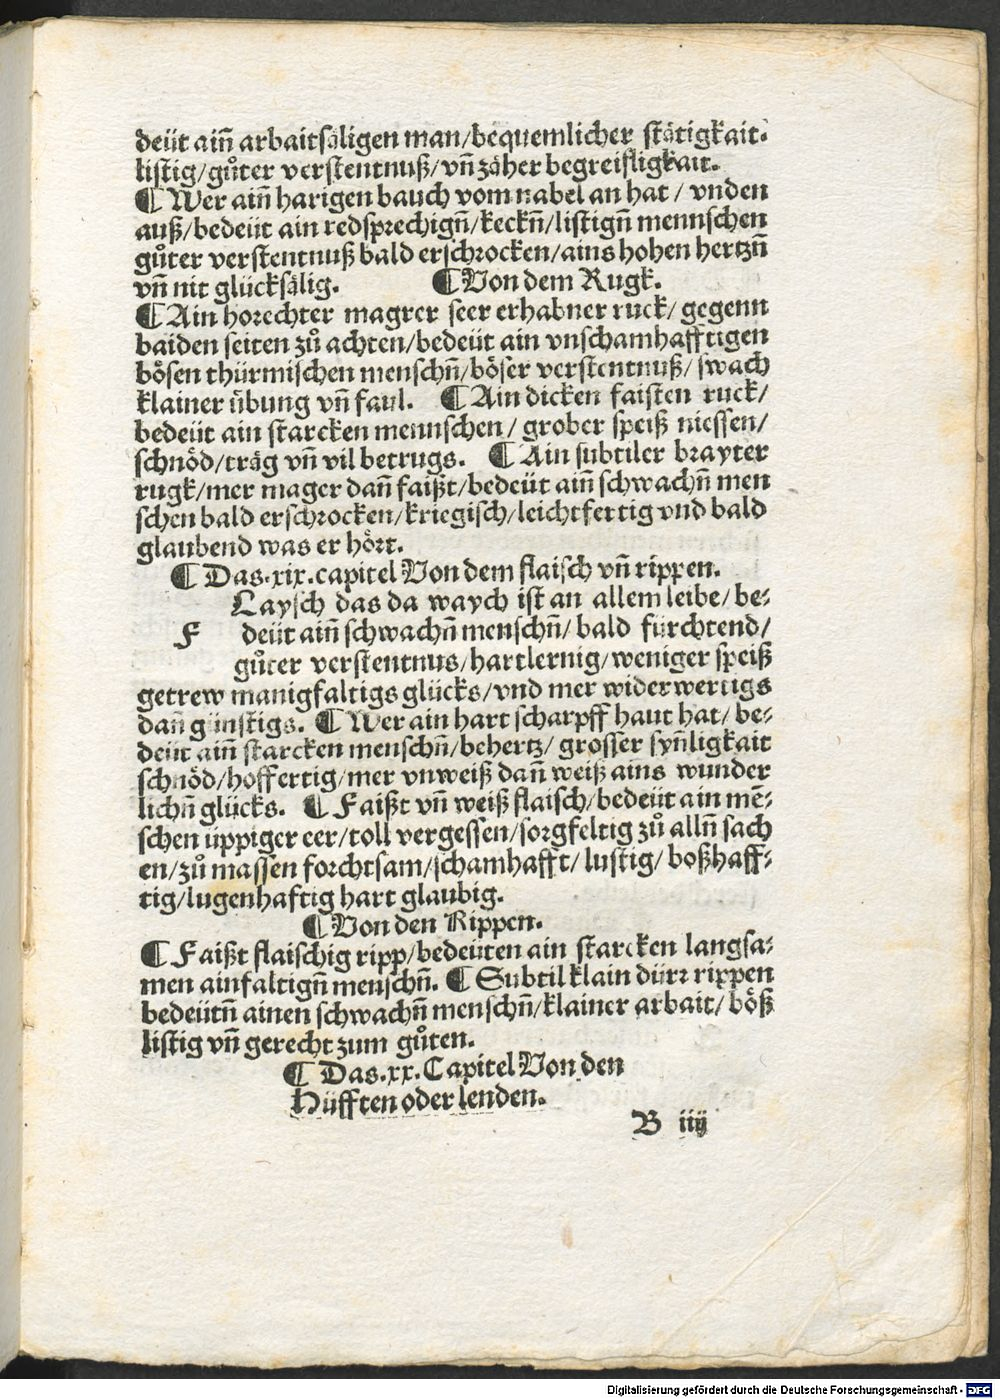 deüt aiñ arbaitsäligen man/bequemlicher stätigkait.
listig/gůter verstentnuß/vñ zäher begreifligkait.
¶ Wer aiñ harigen bauch vom nabel an hat / vnden
auß/bedeüt ain redsprechigñ/keckñ/listigñ mennschen
gůter verstentnuß bald erschrocken/ains hohen hertzñ
vñ nit glücksälig. ¶ Von dem Rugk.
¶ Ain horechter magrer seer erhabner ruck/ gegenn
baiden seiten zů achten/bedeüt ain vnschamhafftigen
bösen thürmischen menschñ/böser verstentnuß/ swach
klainer übung vñ faul. ¶ Ain dicken faisten ruck/
bedeüt ain starcken mennschen / grober speiß niessen/
schnöd/träg vñ vil betrugs. ¶ Ain subtiler brayter
rugk/mer mager dañ faißt/bedeüt aiñ schwachñ men
schen bald erschrocken/kriegisch/leichtfertig vnd bald
glaubend was er hört.
¶ Das.xix.capitel Von dem flaisch vñ rippen.
F Laysch das da waych ist an allem leibe/ be⸗
deüt aiñ schwachñ menschñ/ bald fürchtend/
gůter verstentnus/hartlernig/weniger speiß
getrew manigfaltigs glücks/vnd mer widerwertigs
dañ günstigs. ¶ Wer ain hart scharpff haut hat/ be⸗
deüt aiñ starcken menschñ/behertz/ grosser syñligkait
schnöd/hoffertig/mer vnweiß dañ weiß ains wunder
lichñ glücks. ¶ Faißt vñ weiß flaisch/bedeüt ain mē⸗
schen üppiger eer/toll vergessen/sorgfeltig zů allñ sach
en/zů massen forchtsam/schamhafft/ lustig/ boßhaff⸗
tig/lugenhaftig hart glaubig.
¶ Von den Rippen.
¶ Faißt flaischig ripp/bedeüten ain starcken langsa⸗
men ainfaltigñ menschñ. ¶ Subtil klain dürr rippen
bedeütñ ainen schwachñ menschñ/klainer arbait/ böß
listig vñ gerecht zum gůten.
¶ Das.xx.Capitel Von den
Hüfften oder lenden.
B iiij
Digitalisierung gefördert durch die Deutsche Forschungsgemeinschaft - DFG